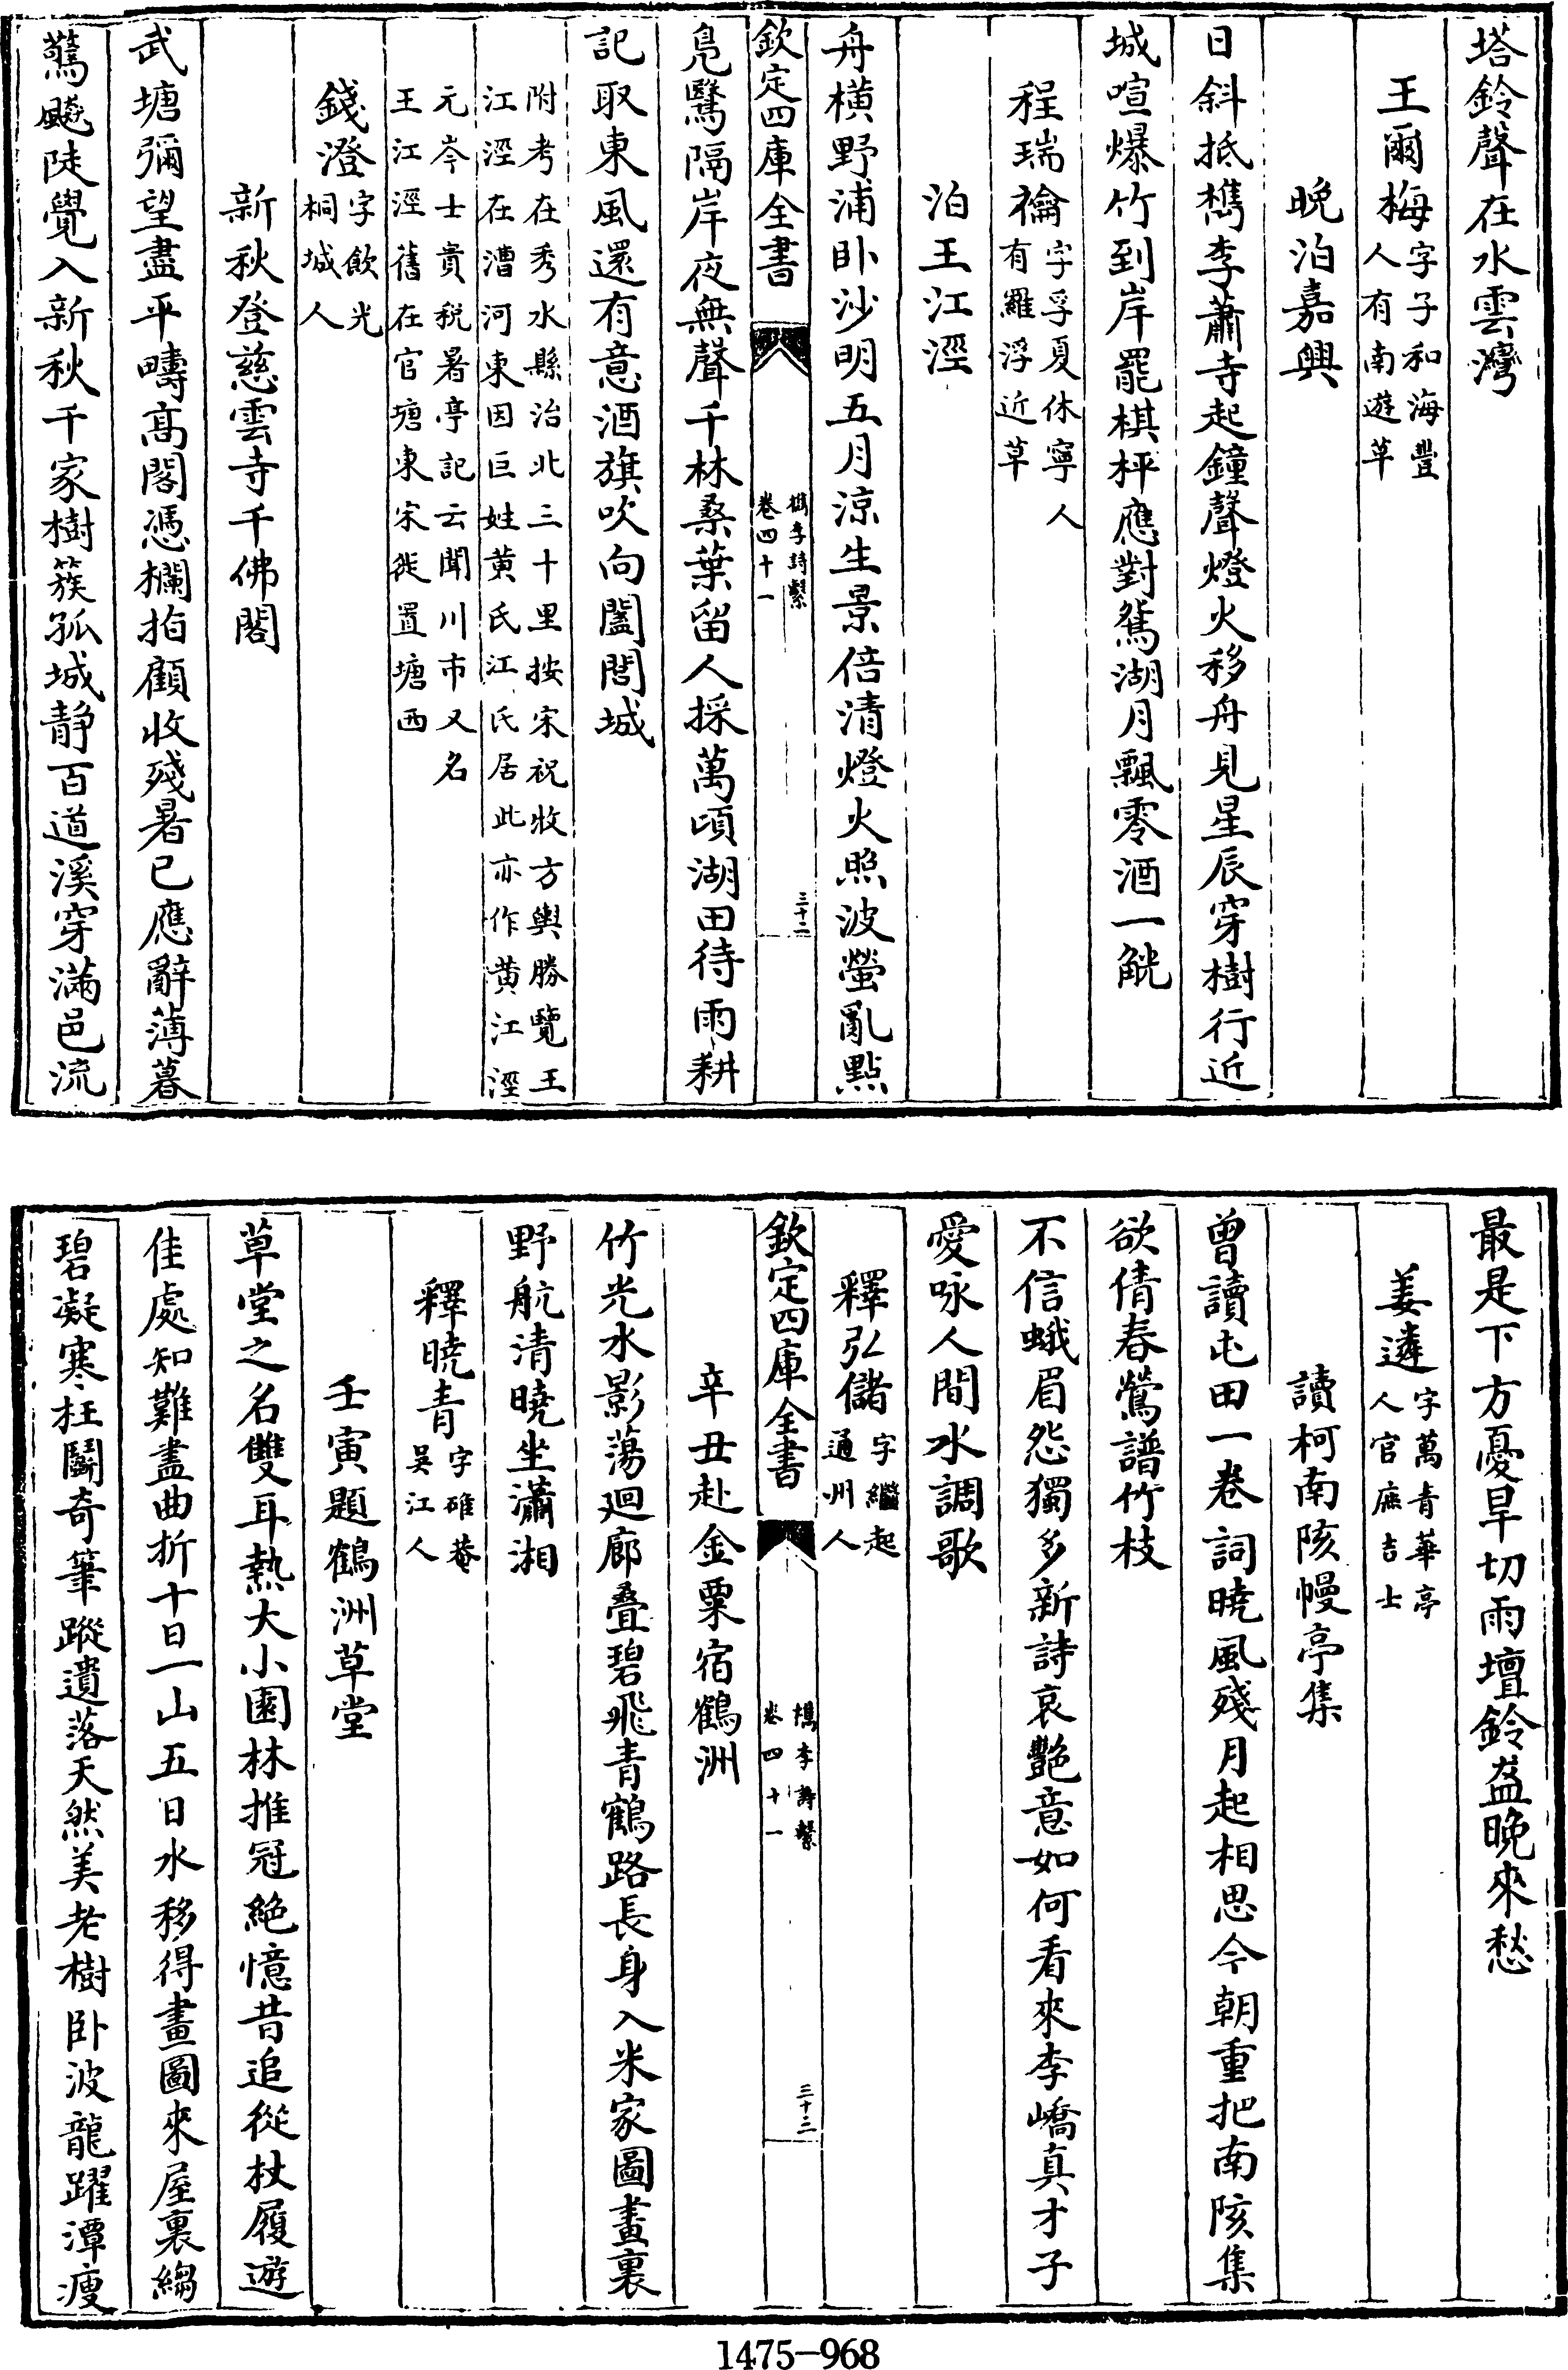 塔鈴聲在水雲灣
王爾梅字子和海豐人有南遊草
晚泊嘉興
日斜抵檇李蕭寺起鐘聲燈火移舟見星辰穿樹行近
城喧爆竹到岸罷棋枰應對鴛湖月飄零酒一觥
程瑞禴字孚夏休寧人有羅浮近草
泊王江涇
舟橫野浦卧沙明五月涼生景倍清燈火照波螢亂點
欽定四庫全書
檇李詩繫
卷四十一
三十二
鳧鷖隔岸夜無聲千林桑葉留人採萬頃湖田待雨耕
記取東風還有意酒旗吹向闔閭城
附考在秀水縣治北三十里按宋祝牧方輿勝覽王
江涇在漕河東因巨姓黄氏江氏居此亦作黄江涇
元岑士貴税暑亭記云聞川市又名
王江涇舊在官塘東宋徙置塘西
錢澄字飲光桐城人
新秋登慈雲寺千佛閣
武塘彌望盡平疇高閣憑欄拍顧收殘暑已應辭薄暮
驚飈陡覺入新秋千家樹簇孤城静百道溪穿滿邑流
最是下方憂旱切雨壇鈴盋晚來愁
姜遴字萬青華亭人官庶吉士
讀柯南陔幔亭集
曾讀屯田一卷詞曉風殘月起相思今朝重把南陔集
欲倩春鶯譜竹枝
不信蛾眉怨獨多新詩哀艷意如何看來李嶠真才子
愛咏人間水調歌
釋弘儲字繼起通州人
欽定四庫全書
檇李詩繫
卷四十一
三十三
辛丑赴金粟宿鶴洲
竹光水影蕩廻廊叠碧飛青鶴路長身入米家圖畫裏
野航清曉坐瀟湘
釋曉青字碓菴吳江人
壬寅題鶴洲草堂
草堂之名雙耳熱大小園林推冠絶憶昔追從杖履遊
佳處知難盡曲折十日一山五日水移得畫圖來屋裏縐
碧凝寒枉鬭奇筆蹤遺落天然美老樹卧波龍躍潭瘦
1475-968